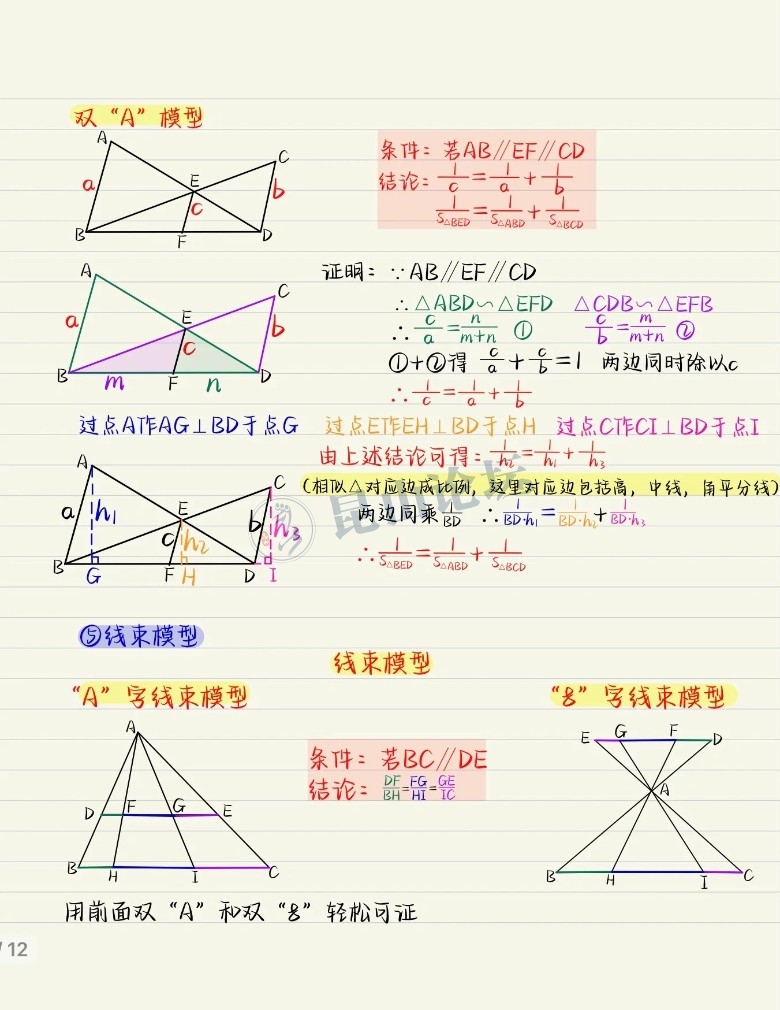 双“A”模型
A
C
a
E
c
b
B
F
D
条件：若AB∥EF∥CD
结论：1/c=1/a+1/b
1/S△BED=1/S△ABD+1/S△BCD
A
C
a
E
c
b
B
m
F
n
D
证明：∵AB∥EF∥CD
∴△ABD∽△EFD △CDB∽△EFB
∴c/a=n/m+n ① c/b=m/m+n ②
①+②得 c/a+c/b=1 两边同时除以c
∴1/c=1/a+1/b
过点A作AG⊥BD于点G 过点E作EH⊥BD于点H 过点C作CI⊥BD于点I
由上述结论可得：1/h₂=1/h₁+1/h₃
（相似△对应边成比例，这里对应边包括高，中线，角平分线）
两边同乘1/BD ∴1/BD·h₁=1/BD·h₂+1/BD·h₃
∴1/S△BED=1/S△ABD+1/S△BCD
A
C
a
h₁
E
c
h₂
b
h₃
B
G
F
H
D
I
昆山论坛
⑤线束模型
线束模型
“A”字线束模型
“8”字线束模型
A
D
F
G
E
B
H
I
C
条件：若BC∥DE
结论：DF/BH=FG/HI=GE/IC
E
G
F
D
A
B
H
I
C
用前面双“A”和双“8”轻松可证
/12